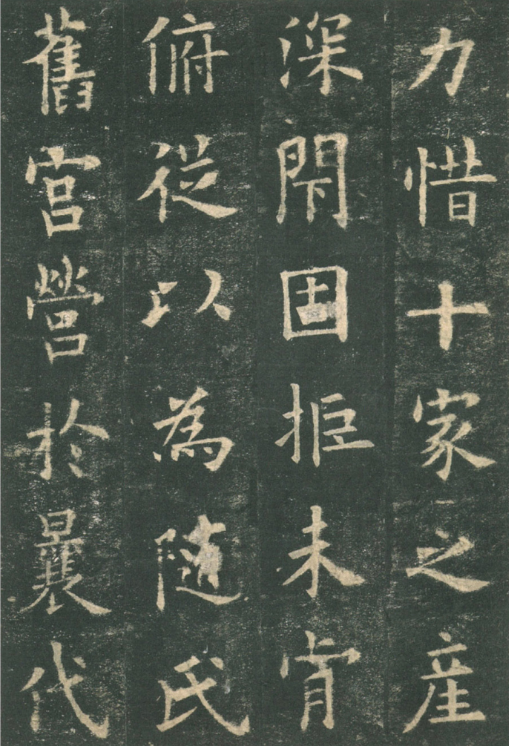 力惜十家之産
深閇固拒未肯
俯從以為隨氏
舊宫營於曩代